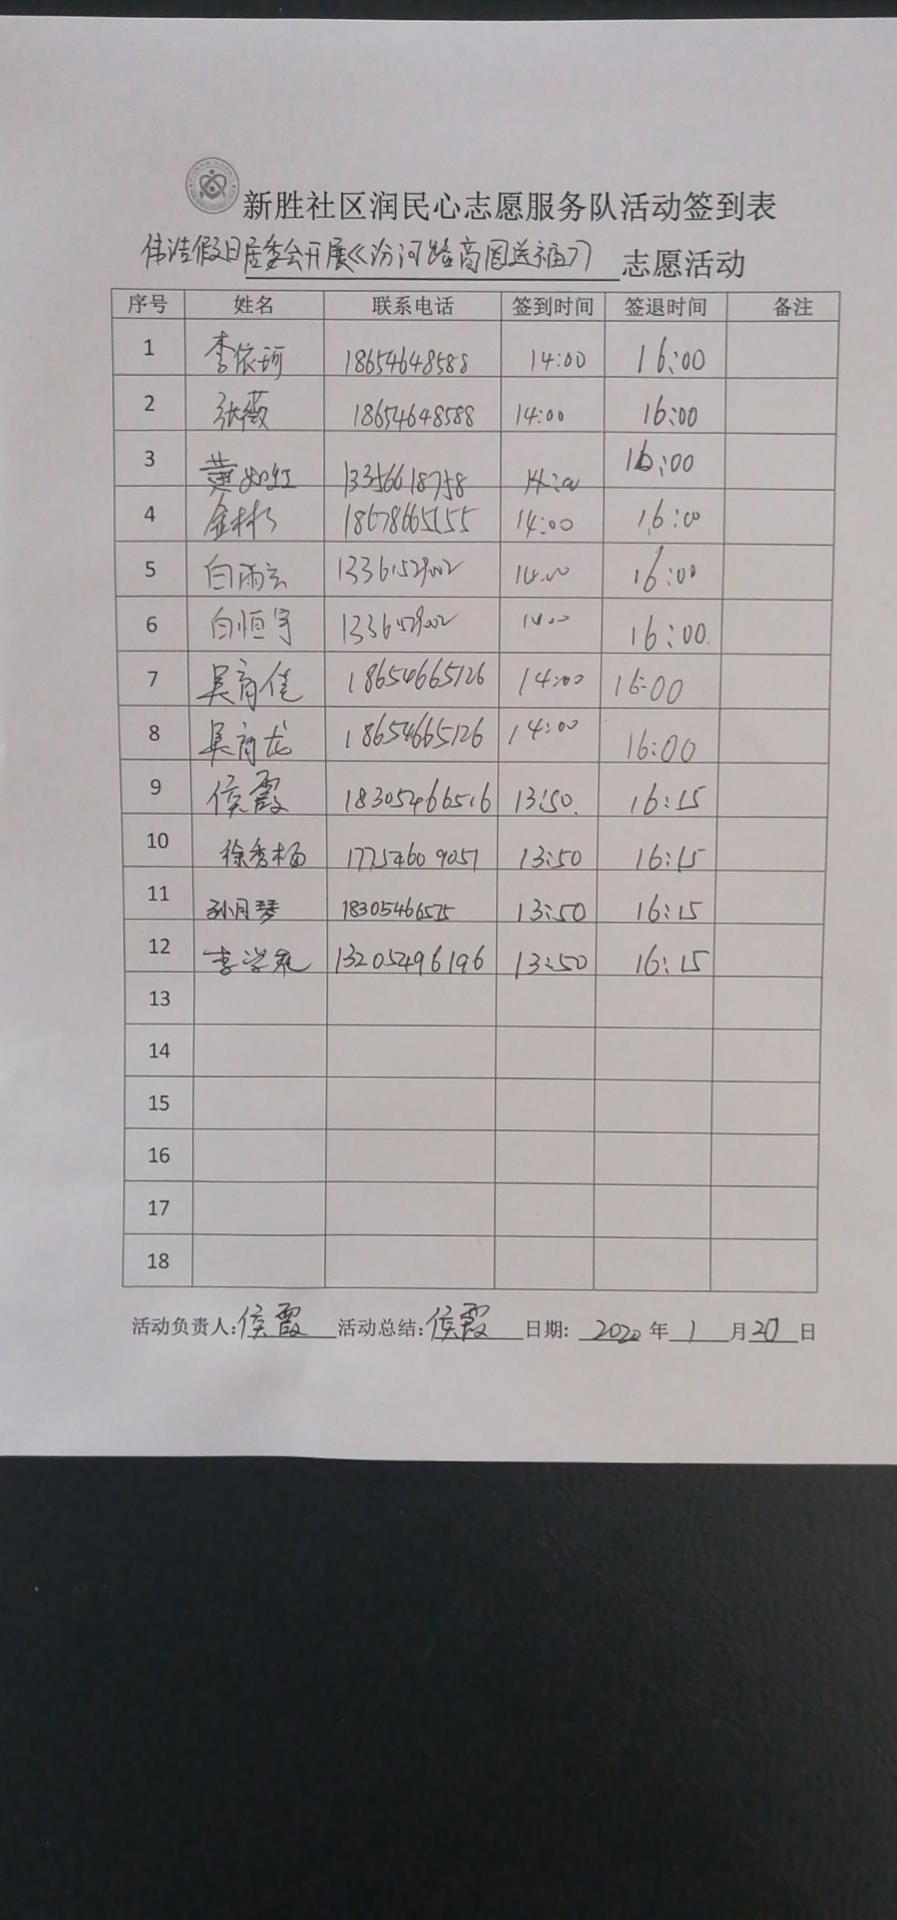 新胜社区润民心志愿服务队活动签到表
伟浩假日居委会开展《汾河路商圈送福》志愿活动
序号 姓名 联系电话 签到时间 签退时间 备注
1 李依珂 18654648588 14:00 16:00
2 张薇 18654648588 14:00 16:00
3 黄如红 13356618758 14:00 16:00
4 金彬彬 18678665155 14:00 16:00
5 白雨云 13361529002 14:00 16:00
6 白恒宇 13361529002 14:00 16:00
7 吴育佳 18654665126 14:00 16:00
8 吴育龙 18654665126 14:00 16:00
9 侯霞 18305466516 13:50. 16:15
10 徐秀梅 17754609051 13:50 16:15
11 孙月琴 18305466575 13:50 16:15
12 李学 13205496196 13:50 16:15
13
14
15
16
17
18
活动负责人:侯霞 活动总结:侯霞 日期: 2020年1月20日